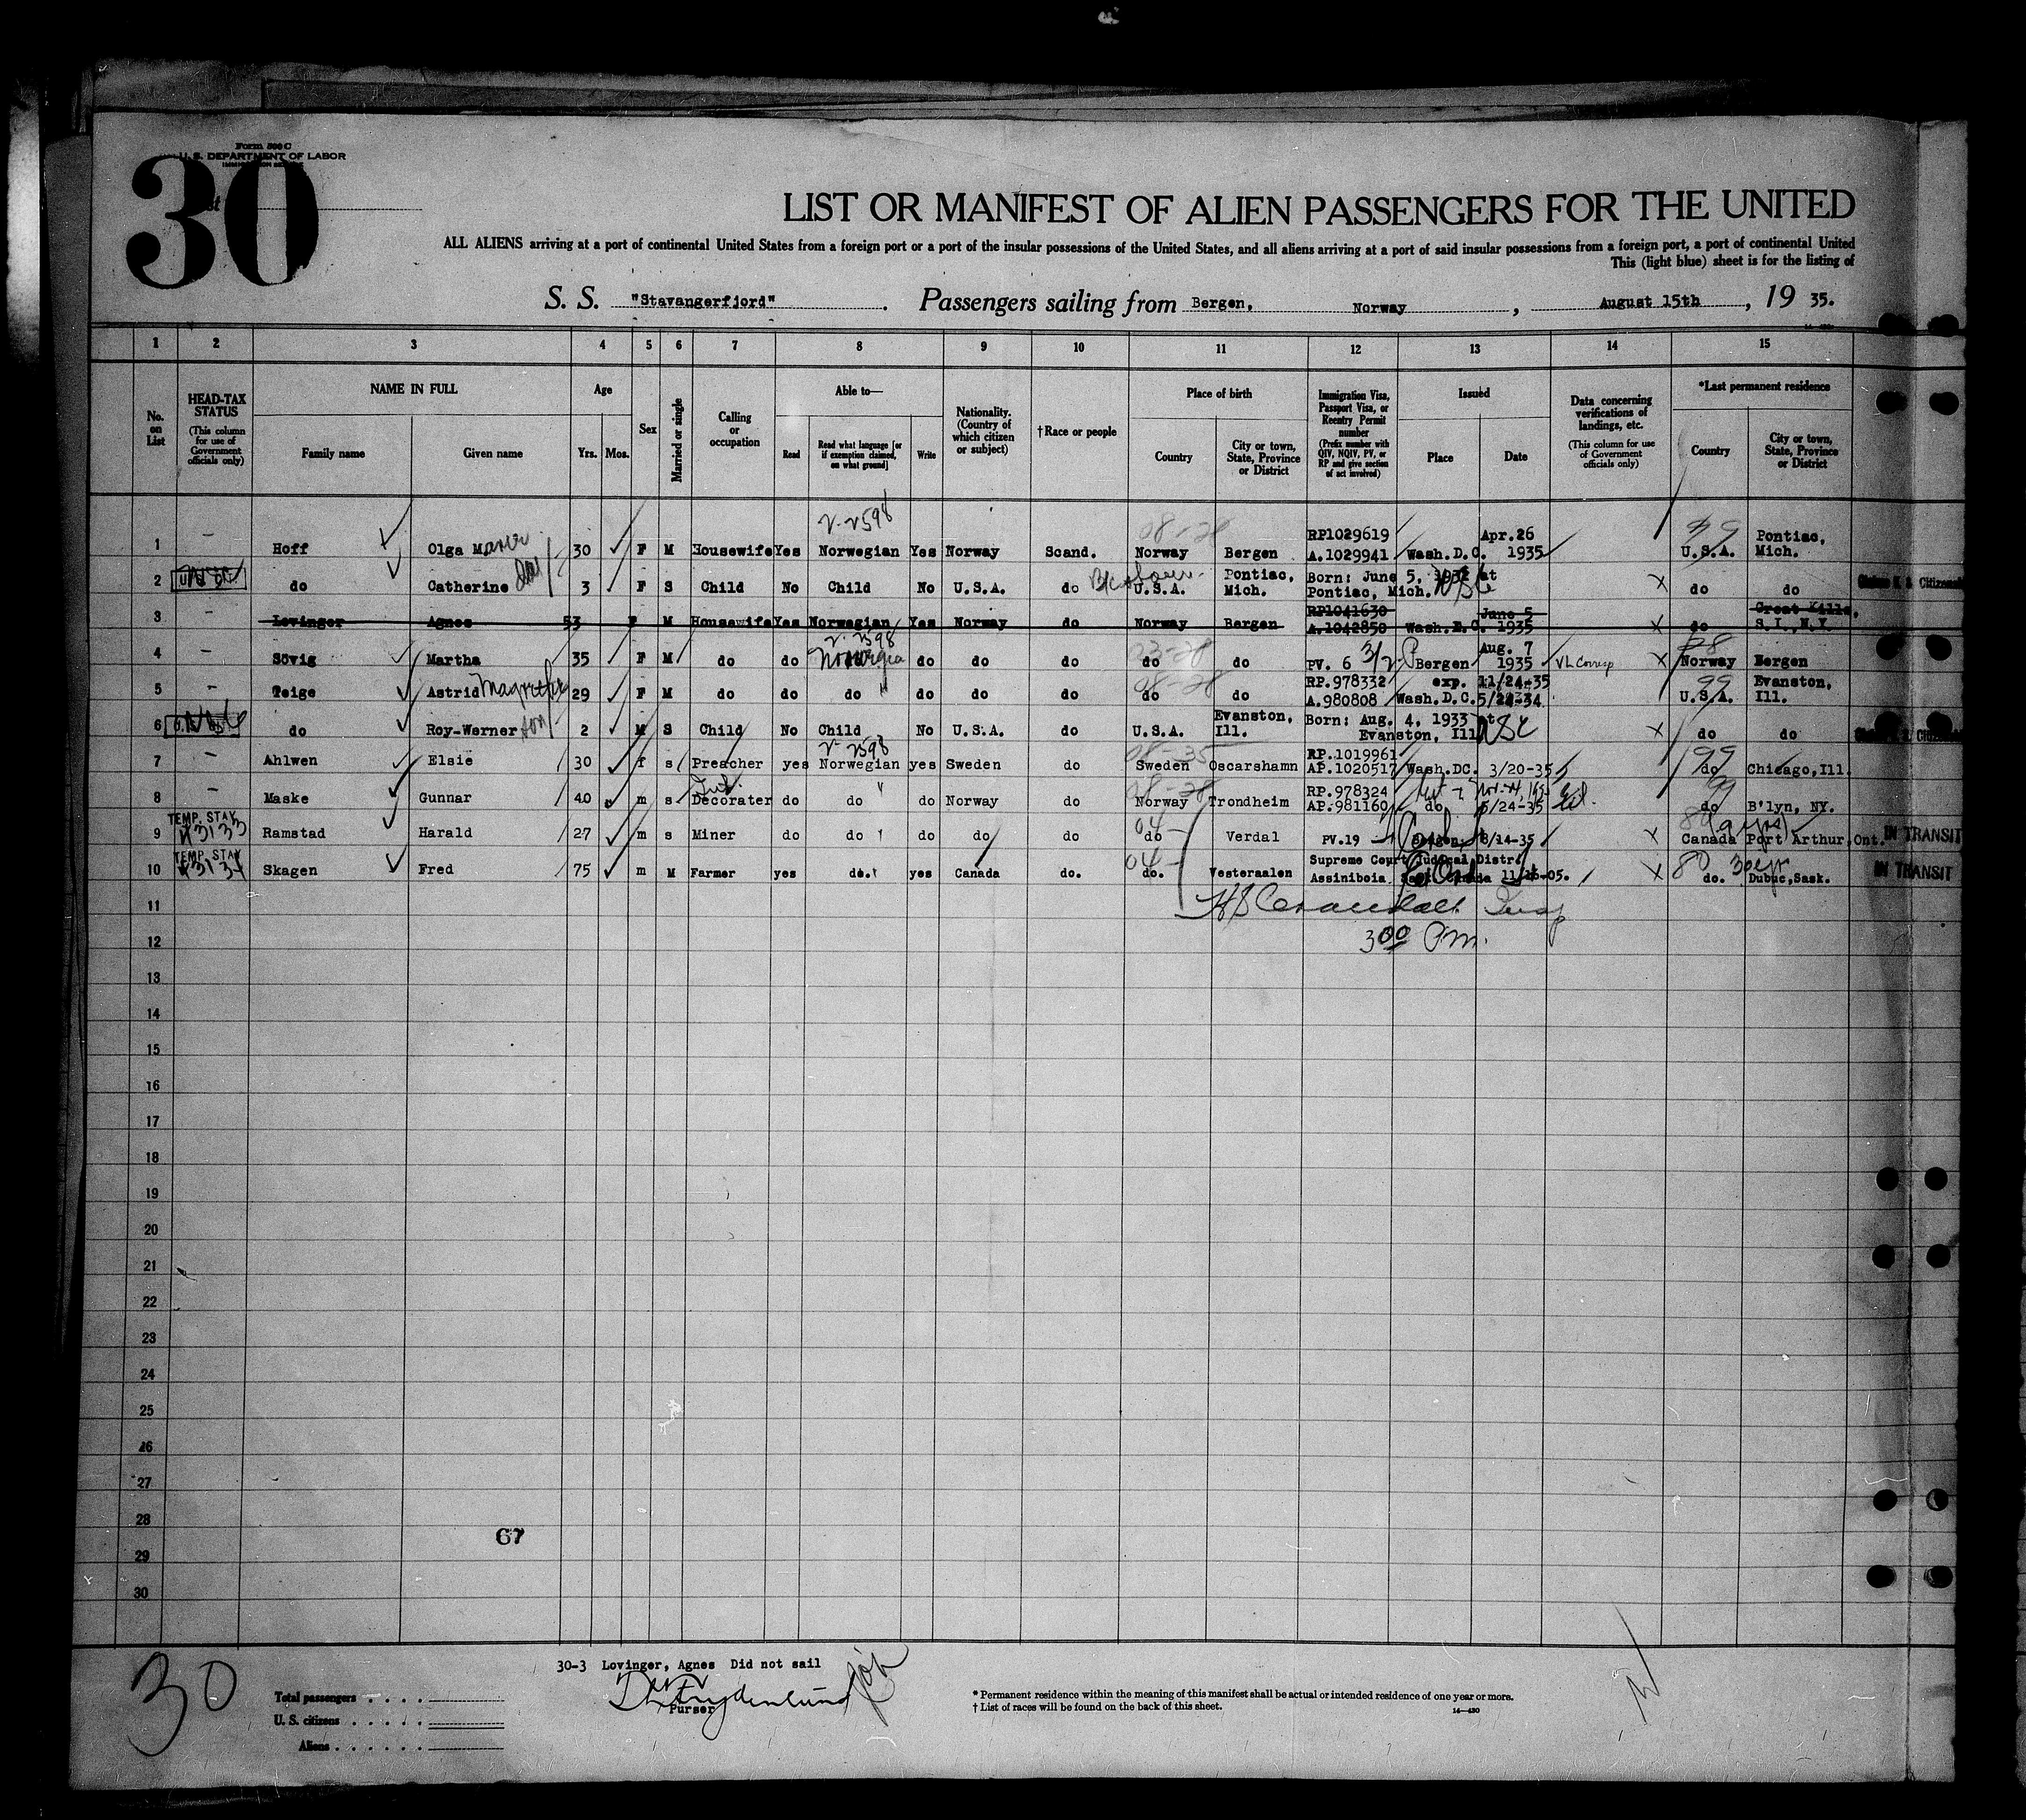 Form 500 C
U. S. DEPARTMENT OF LABOR
30
LIST OR MANIFEST OF ALIEN PASSENGERS FOR THE UNITED
ALL ALIENS arriving at a port of continental United States from a foreign port or a port of the insular possessions of the United States, and all aliens arriving at a port of said insular possessions from a foreign port, a port of continental United
This (light blue) sheet is for the listing of
S. S. "Stavangerfjord" . Passengers sailing from Bergen, Norway , August 15th , 19 35.
1 2 3 4 5 6 7 8 9 10 11 12 13 14 15
No. on List
HEAD-TAX STATUS (This column for use of Government officials only)
NAME IN FULL Family name Given name
Age Yrs. Mos.
Sex
Married or single
Calling or occupation
Able to— Read Read what language [or if exemption claimed, on what ground] Write
Nationality. (Country of which citizen or subject)
†Race or people
Place of birth Country City or town, State, Province or District
Immigration Visa, Passport Visa, or Reentry Permit number (Prefix number with QIV, NQIV, PV, or RP and give section of act involved)
Issued Place Date
Data concerning verifications of landings, etc. (This column for use of Government officials only)
*Last permanent residence Country City or town, State, Province or District
1 – Hoff Olga 30 F M Housewife Yes Norwegian Yes Norway Scand. 08-28 Norway Bergen RP1029619 A.1029941 Wash.D.C. Apr.26 1935 99 U.S.A. Pontiac, Mich.
2 do Catherine 3 F S Child No Child No U.S.A. do U.S.A. Pontiac, Mich. Born: June 5, 1932 at Pontiac, Mich. X do do
3 – Lovinger Agnes 53 F M Housewife Yes Norwegian Yes Norway do Norway Bergen RP1041630 A.1042850 Wash.D.C. June 5 1935 X do Great Kills, S.I., N.Y.
4 – Sövig Martha 35 F M do do Norwegian do do do 03-28 do do PV. 6 3/2 Bergen Aug. 7 1935 X Norway Bergen
5 – Teige Astrid 29 F M do do do do do do 08-28 do do RP.978332 A.980808 Wash.D.C. exp. 11/24-35 99 U.S.A. Evanston, Ill.
6 do Roy-Werner son 2 M S Child No Child No U.S.A. do U.S.A. Evanston, Ill. Born: Aug. 4, 1933 at Evanston, Ill. X do do
7 – Ahlwen Elsie 30 f s Preacher yes Norwegian yes Sweden do 08-35 Sweden Oscarshamn RP.1019961 AP.1020517 Wash.DC. 3/20-35 99 do Chicago,Ill.
8 – Maske Gunnar 40 m s Decorater do do do Norway do 08-28 Norway Trondheim RP.978324 AP.981160 do 5/24-35 99 do B'lyn, NY.
9 TEMP. STAY Ramstad Harald 27 m s Miner do do do do do 04- do Verdal PV.19 8/14-35 X Canada Port Arthur,Ont. IN TRANSIT
10 TEMP. STAY Skagen Fred 75 m M Farmer yes do. yes Canada do. 04- do. Vesteraalen Supreme Court Judical Distr. Assiniboia 11/16-05. X 80 do. Dubuc,Sask. IN TRANSIT
11
12 3 00 Pm.
13
14
15
16
17
18
19
20
21
22
23
24
25
26
27
28 67
29
30
30
30-3 Lovinger, Agnes Did not sail
Purser
Total passengers . . . .
U. S. citizens . . . . .
Aliens . . . . . .
* Permanent residence within the meaning of this manifest shall be actual or intended residence of one year or more.
† List of races will be found on the back of this sheet.
14—430